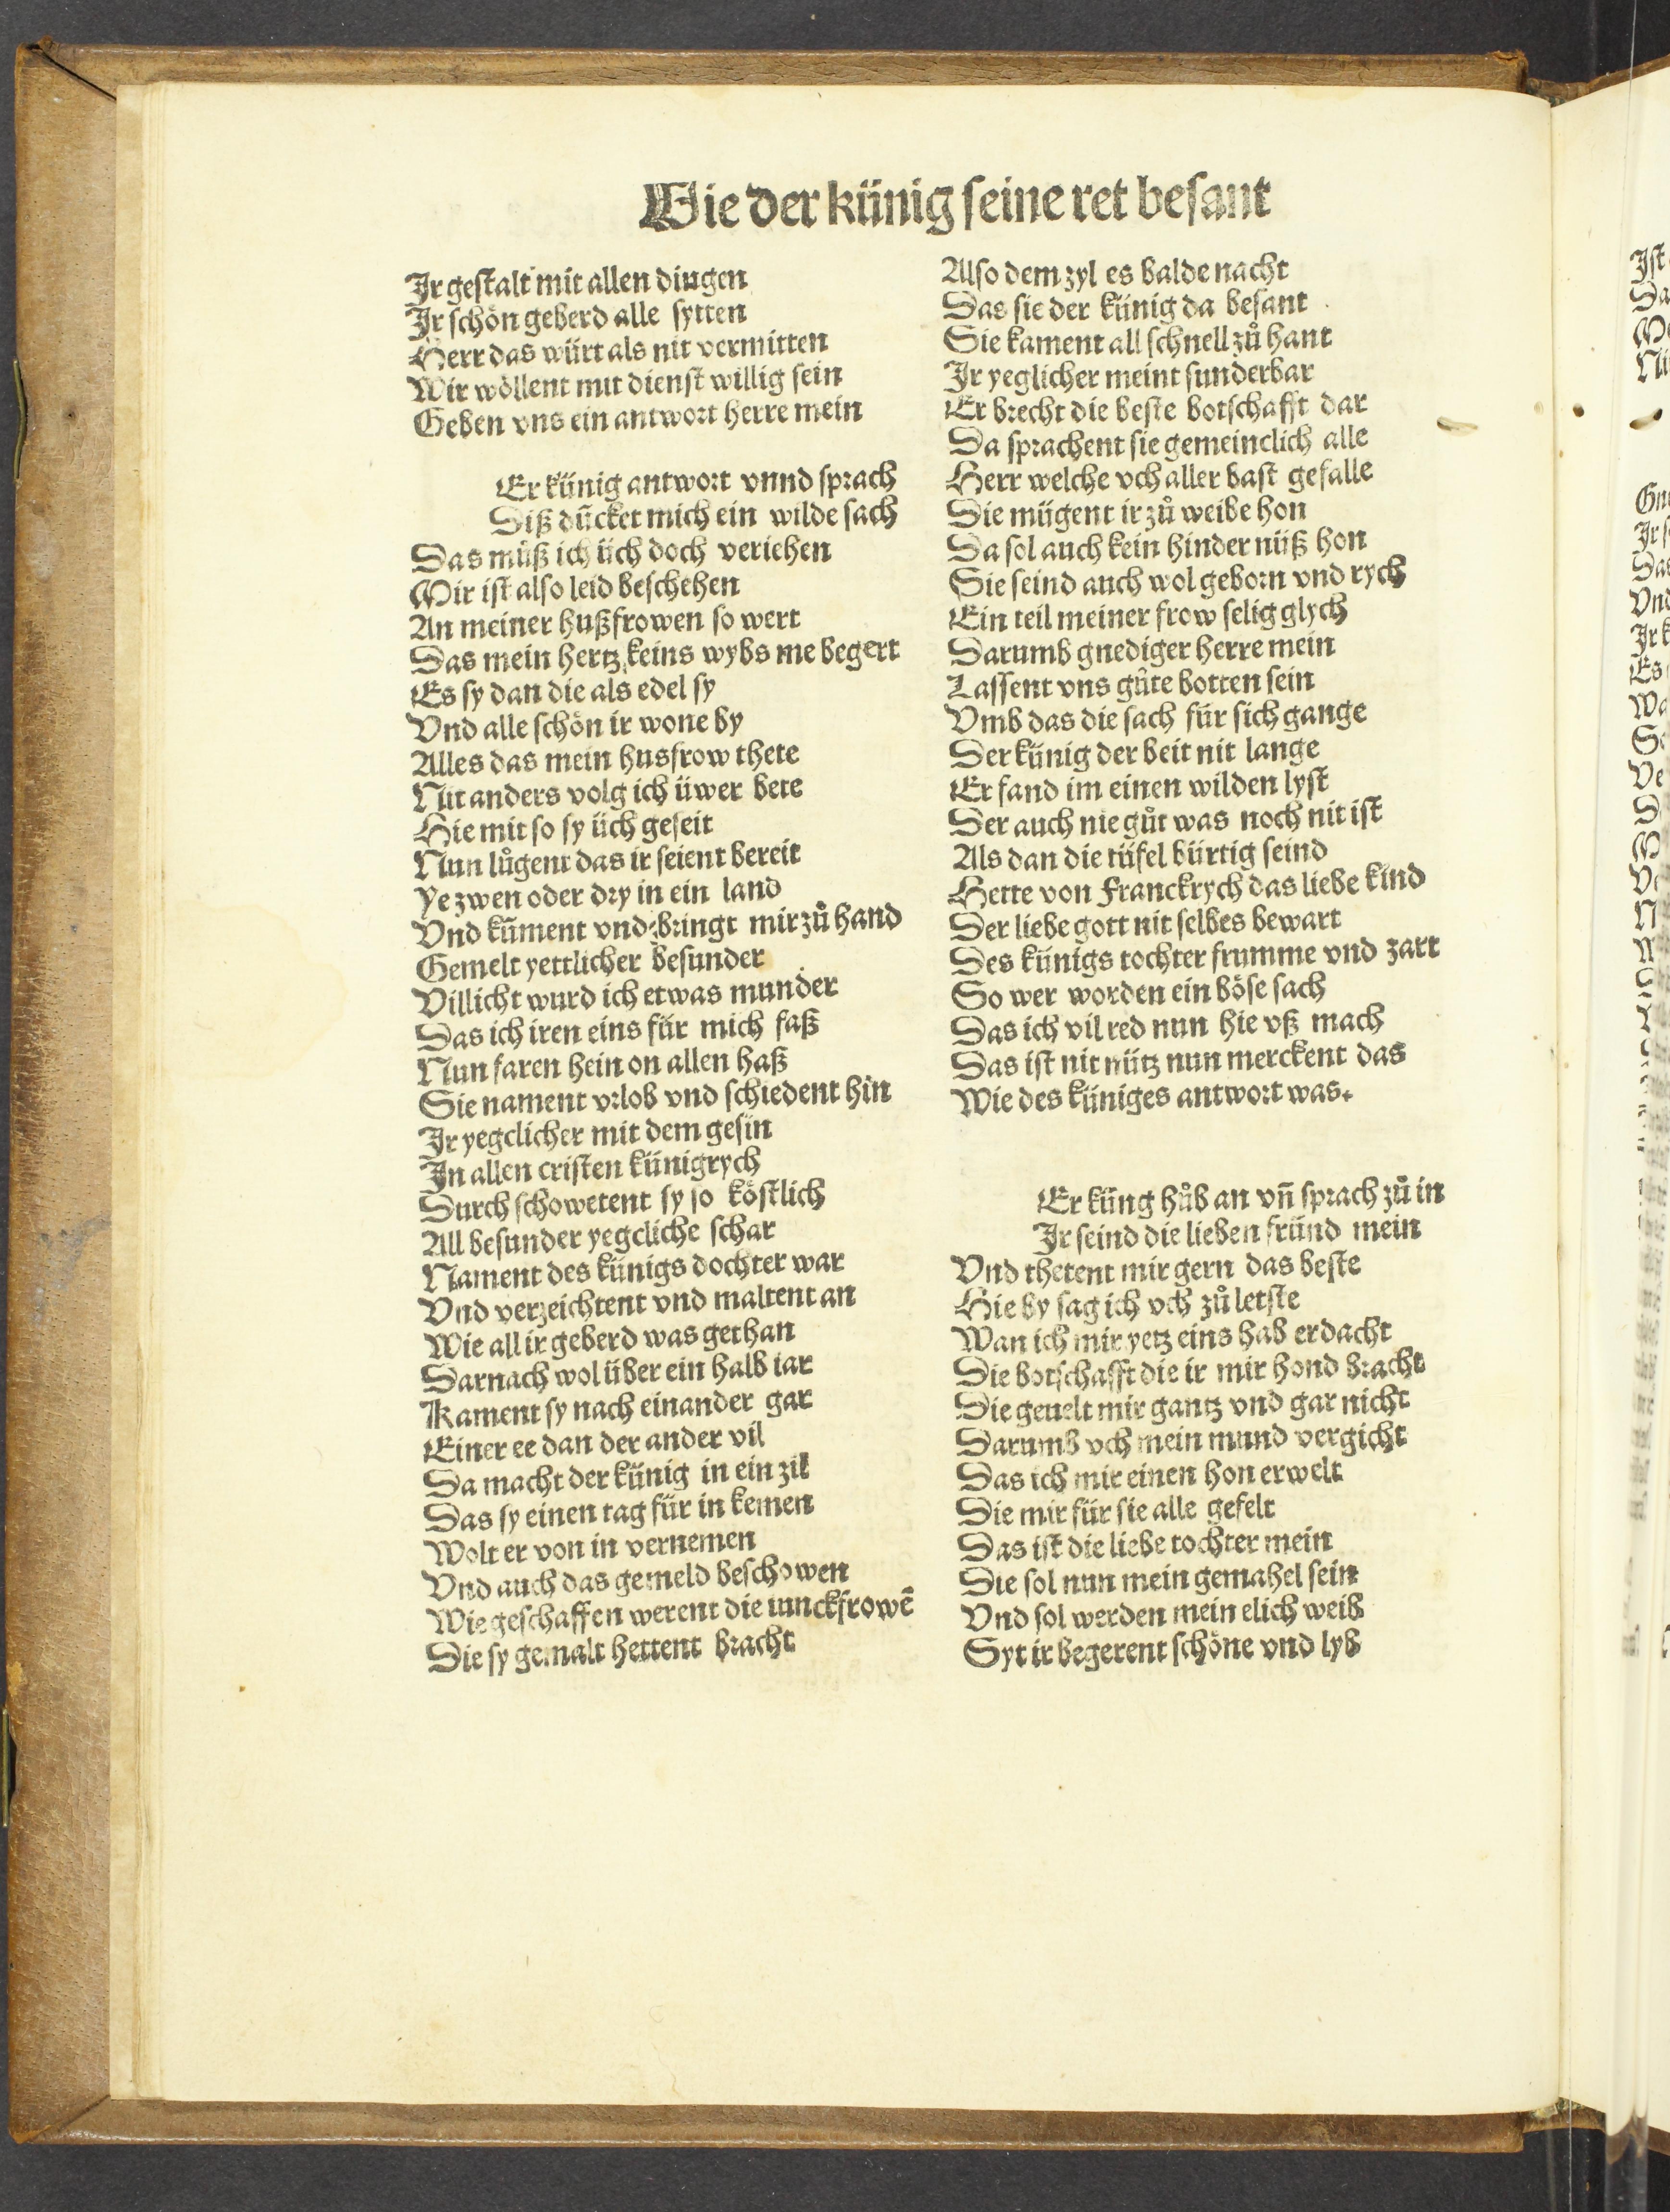 Wie der künig seine ret besant
Ir gestalt mit allen dingen
Ir schön geberd alle sytten
Herr das würt als nit vermitten
Wir wöllent mit dienst willig sein
Geben vns ein antwort herre mein
Er künig antwort vnnd sprach
Diß dücket mich ein wilde sach
Das müß ich üch doch veriehen
Mir ist also leid beschehen
An meiner hußfrowen so wert
Das mein hertz keins wybs me begert
Es sy dan die als edel sy
Vnd alle schön ir wone by
Alles das mein husfrow thete
Nit anders volg ich üwer bete
Hie mit so sy üch geseit
Nun lůgent das ir seient bereit
Ye zwen oder dry in ein land
Vnd kūment vnd bringt mir zů hand
Gemelt yettlicher besunder
Villicht wurd ich etwas munder
Das ich iren eins für mich faß
Nun faren hein on allen haß
Sie nament vrlob vnd schiedent hin
Ir yegclicher mit dem gesin
In allen cristen künigrych
Durch schowetent sy so köstlich
All besunder yegcliche schar
Nament des künigs dochter war
Vnd verzeichtent vnd maltent an
Wie all ir geberd was gethan
Darnach wol über ein halb iar
Kament sy nach einander gar
Einer ee dan der ander vil
Da macht der künig in ein zil
Das sy einen tag für in kemen
Wolt er von in vernemen
Vnd auch das gemeld beschowen
Wie geschaffen werent die iunckfrowē
Die sy gemalt hettent bracht
Also dem zyl es balde nacht
Das sie der künig da besant
Sie kament all schnell zů hant
Ir yeglicher meint sunderbar
Er brecht die beste botschafft dar
Da sprachent sie gemeinclich alle
Herr welche vch aller bast gefalle
Die mügent ir zů weibe hon
Da sol auch kein hinder nüß hon
Sie seind auch wol geborn vnd rych
Ein teil meiner frow selig glych
Darumb gnediger herre mein
Lassent vns gůte botten sein
Vmb das die sach für sich gange
Der künig der beit nit lange
Er fand im einen wilden lyst
Der auch nie gůt was noch nit ist
Als dan die tüfel bürtig seind
Hette von Franckrych das liebe kind
Der liebe gott nit selbes bewart
Des künigs tochter frumme vnd zart
So wer worden ein böse sach
Das ich vil red nun hie vß mach
Das ist nit nütz nun merckent das
Wie des küniges antwort was.
Er küng hůb an vn̄ sprach zů in
Ir seind die lieben fründ mein
Vnd thetent mir gern das beste
Hie by sag ich vch zů letste
Wan ich mir yetz eins hab erdacht
Die botschafft die ir mir hond bracht
Die geuelt mir gantz vnd gar nicht
Darumb vch mein mund vergicht
Das ich mir einen hon erwelt
Die mir für sie alle gefelt
Das ist die liebe tochter mein
Die sol nun mein gemahel sein
Vnd sol werden mein elich weib
Syt ir begerent schöne vnd lyb